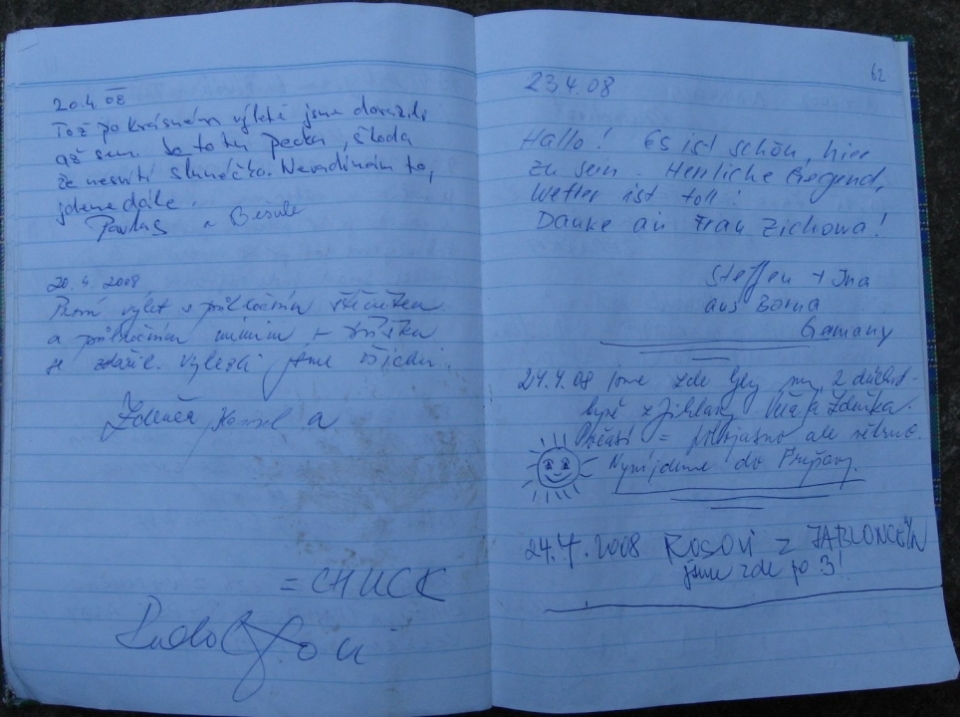 20.4.08
Tož po krásném výletě jsme dorazili
až sem. Je to tu pecka, škoda
že nesvítí slunéčko. Nevadí nám to,
jdeme dále.
Pavlas
20.4.2008
První výlet s půlročním
a půlročním +
se zdařil. Vylezli jsme všichni.
Zdeněk Kamil a
= CHUCK
62
23.4.08
Hallo! Es ist schön, hier
zu sein. Herrliche Gegend,
Wetter ist toll!
Danke an Frau Zichowa!
Steffen + Ina
aus Borna
Germany
24.4.08 jsme zde byly my, 2 důchod-
kyně z Jihlavy Věra a Zdeňka.
Počasí = polojasno ale větrno.
Nyní jdeme do
24.4.2008 ROSOVI z JABLONCE n/N
jsme zde po 3!